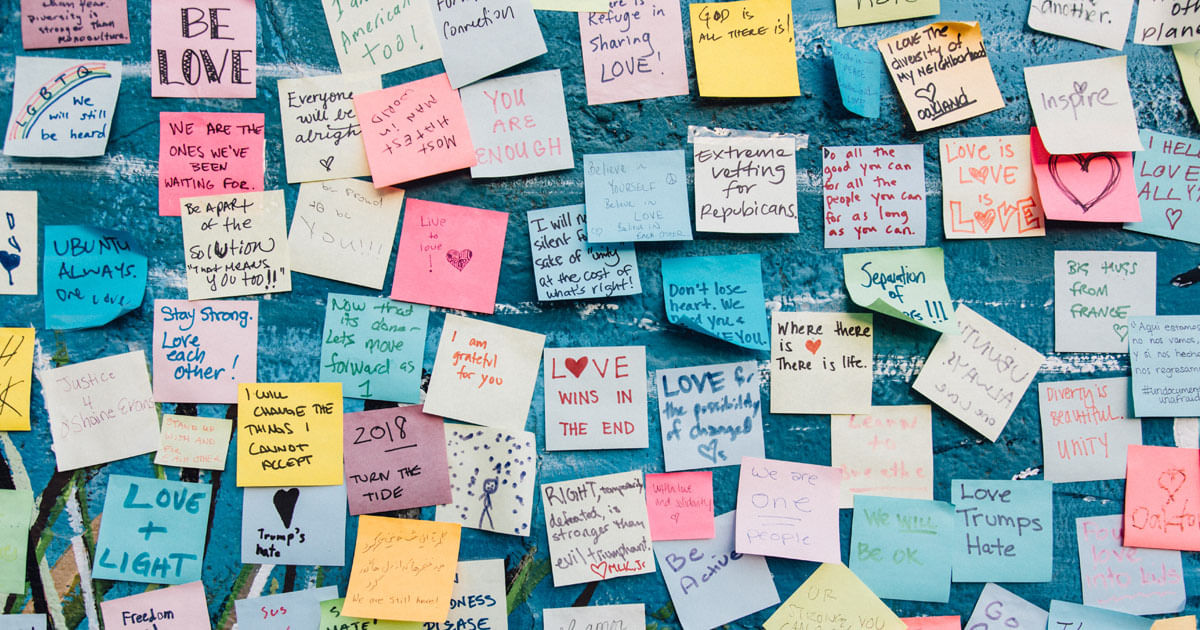 diversity is
stronger than
monoculture.
BE
LOVE
I am
American
TOO!
For
Connection
Refuge in
Sharing
LOVE!
GOD is
ALL THERE IS!
another.
planet
I LOVE THE
diversity of
My NEIGHBORHOOD
Oakland
PEACE
LGBTQ
We
will still
be heard
Everyone
will be
alright
MOST
HATEST
MAN in
WORLD
YOU
ARE
ENOUGH
Inspire
WE ARE THE
ONES WE'VE
BEEN
WAITING FOR.
Believe in
YOURSELF
Believe in
LOVE
Believe in
EACH OTHER
Extreme
vetting
for
Repubicans.
Do all the
good you can
for all the
people you can
for as long
as you can.
LOVE is
LOVE
is
LOVE
LOVE
ALL Y
BE APART
of the
SOLUTION
"THAT MEANS
YOU TOO!!"
to be proud
to be
YOU!!!
Live
to
love
!
I will
silent
sake of "unity"
at the cost of
what's right!
UBUNTU
ALWAYS.
One Love!
Don't lose
heart. We
need you &
We ♥ YOU.
Separation
of
!!!
BIG HUGS
FROM
FRANCE
Stay Strong.
Love
each
other!
Now that
its done-
Lets move
forward as
1
I am
grateful
for you
LOVE
WINS IN
THE END
WHERE THERE
is ♥
There is Life.
UBUNTU
ALWAYS
One Love
"Aqui estamos
no nos vamos,
y si nos hechan
nos regresamos
#undocumented
unafraid
Justice
4
O'Shaine Evans
STAND UP
WITH AND
FOR
EACH OTHER
I WILL
CHANGE THE
THINGS I
CANNOT
ACCEPT
2018
TURN THE
TIDE
LOVE for
the possibility
of changed
♥s
Diverty is
beautiful.
UNITY
LOVE
+
LIGHT
♥
Trump's
hate
RIGHT, temporarily
defeated, is
stronger than
evil triumphant.
♥ MLK, Jr.
With love
and solidarity
We are
ONE
people
Be
Active
We WILL
BE OK
Love
Trumps
Hate
Oakland
love
into
We are still here!
Freedom
SUS
HATE
DISEASE
amor
OR
Go